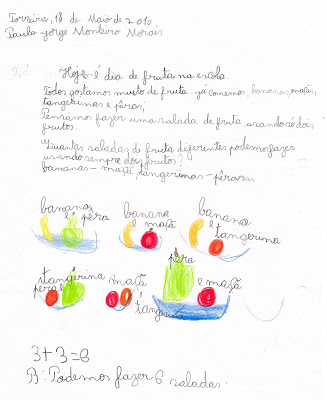 Torreira, 18 de Maio de 2010
Paulo Jorge Monteiro Morais
Hoje é dia de fruta na escola.
Todos gostamos muito de fruta. já comemos, bananas, maçãs,
tangerinas e pêras;
Pensamos fazer uma salada de fruta usando só dois
frutos.
Quantas saladas de fruta diferentes podemos fazer
usando sempre dois frutos?
bananas - maçã, tangerinas - pêras
banana e pêra
banana e maçã
banana e tangerina
tangerina e pêra
maçã e tangerina
pêra e maçã
3+3=6
R: Podemos fazer 6 saladas.